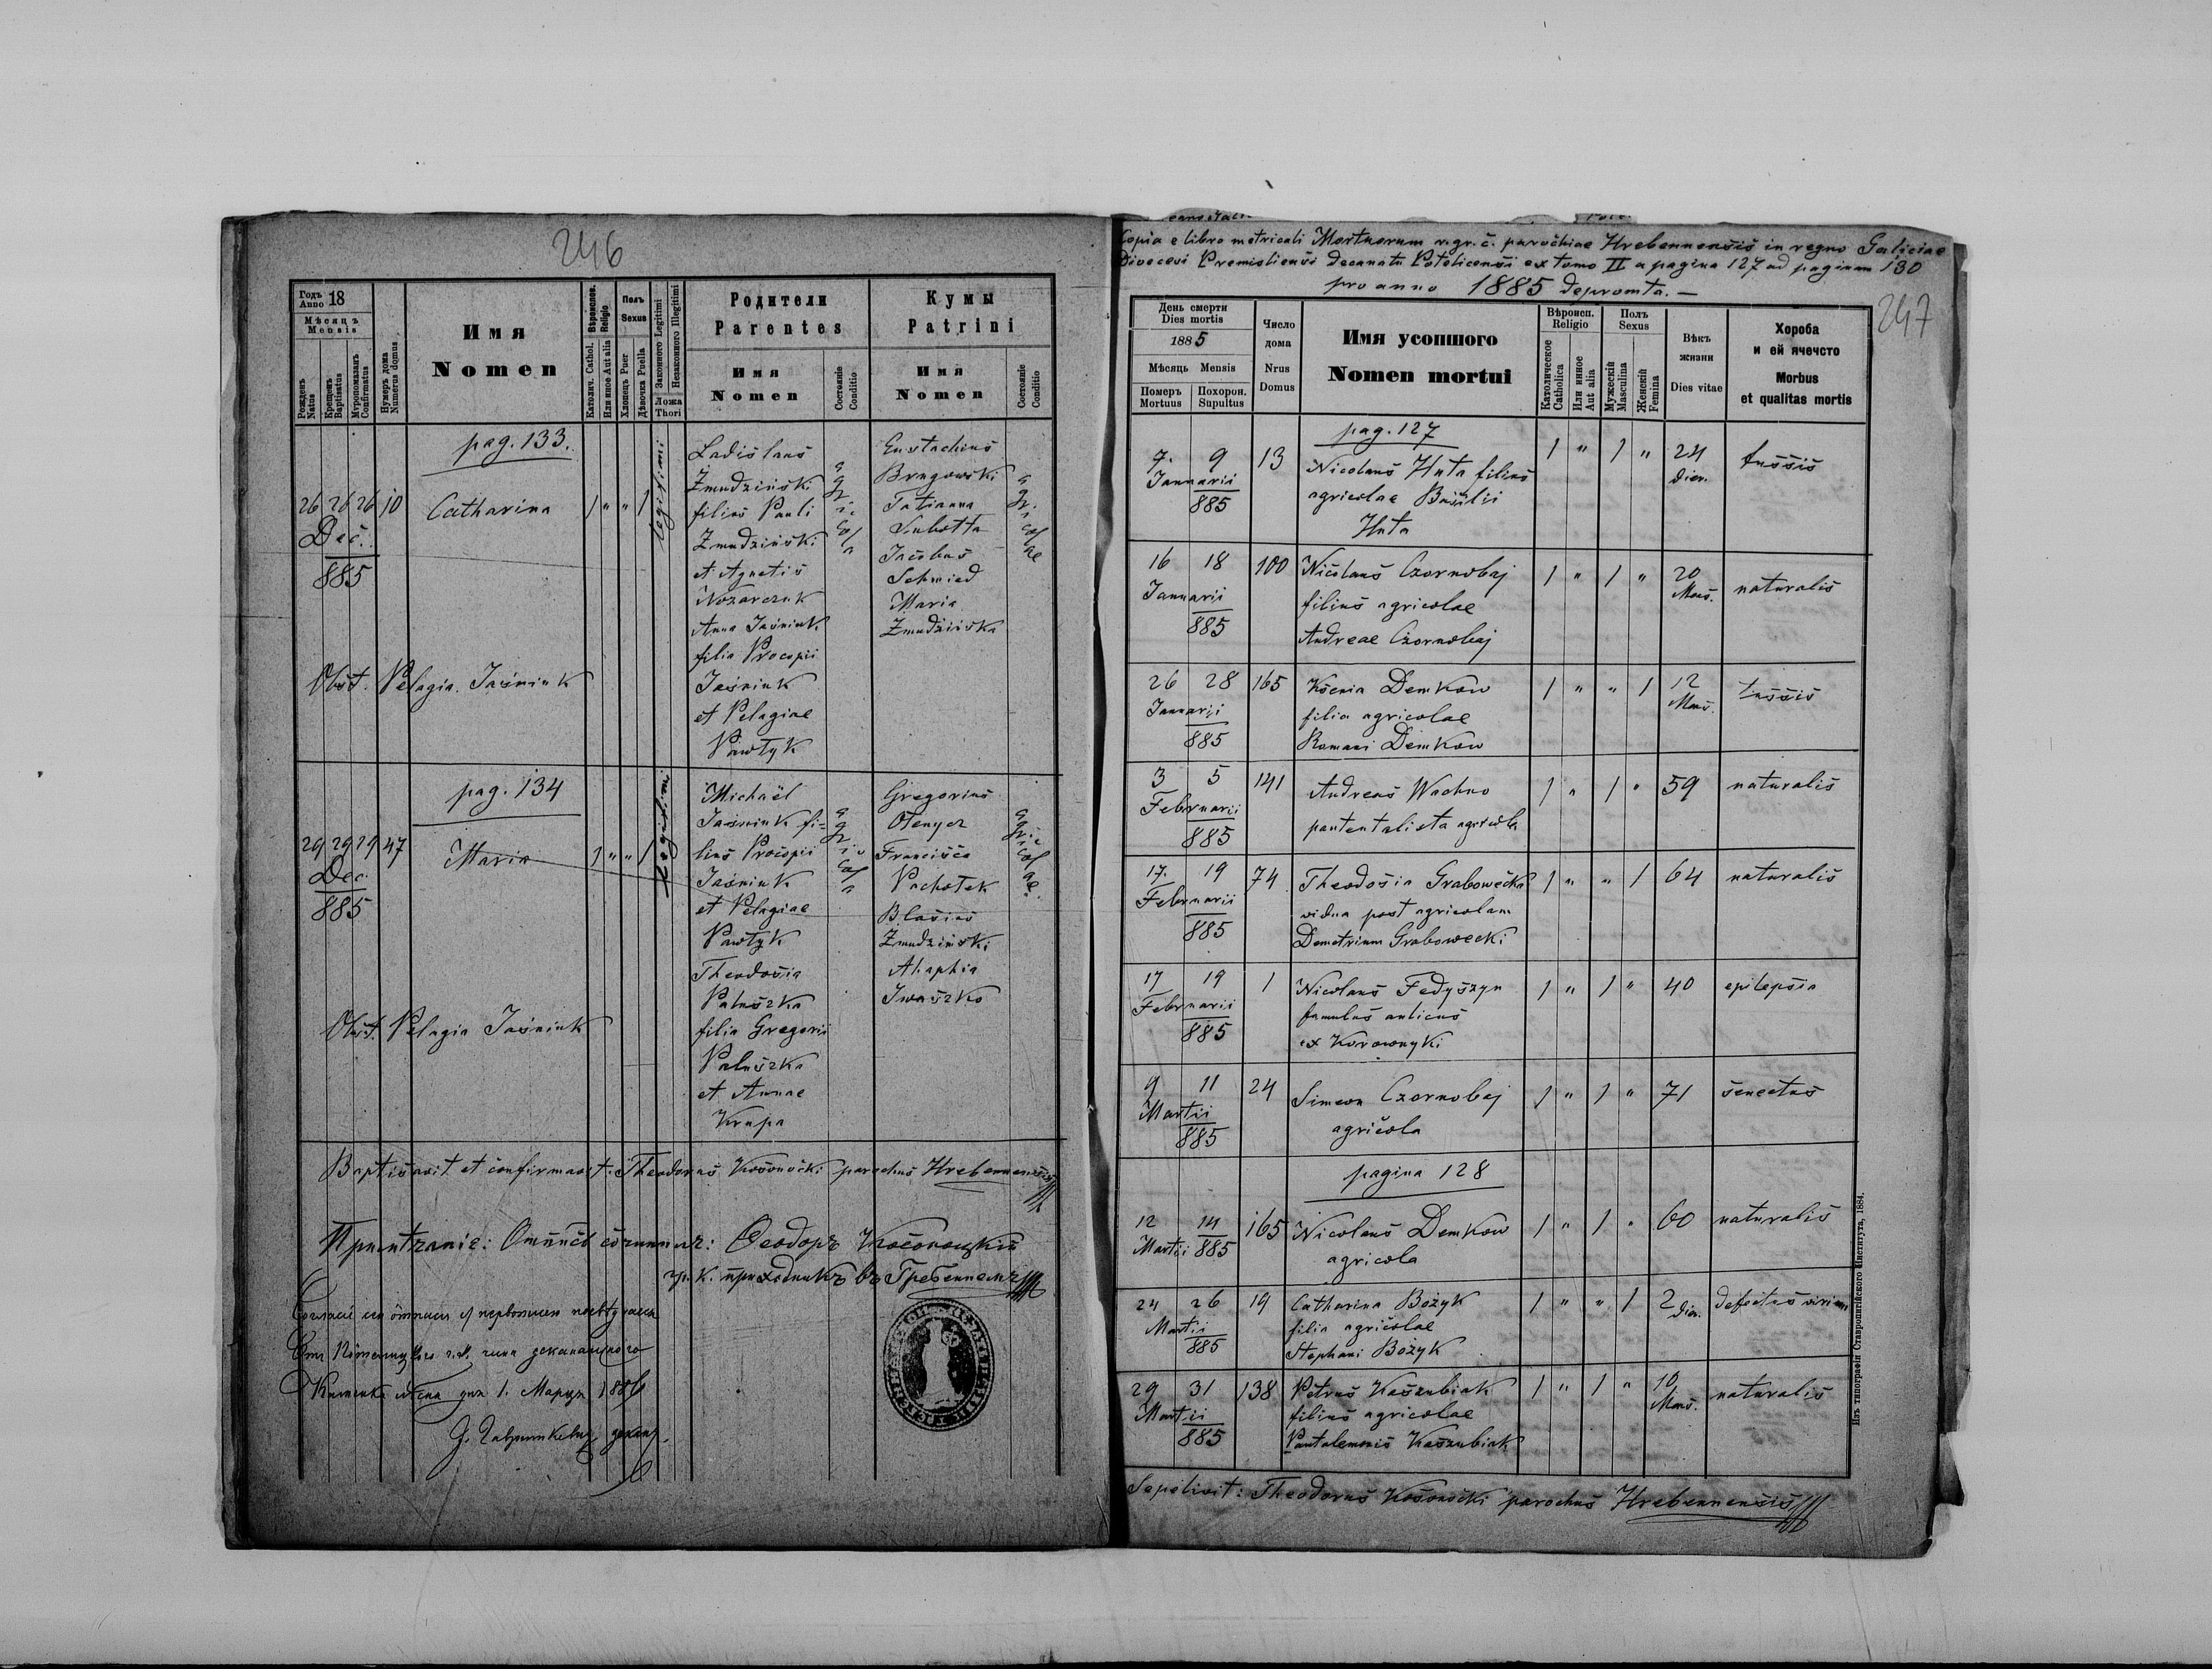 246
Годъ 18
Anno
Мѣсяцъ
Mensis
Рожденъ
Natus
Крещенъ
Baptisatus
Мѵропомазанъ
Confirmatus
Нумеръ дома
Numerus domus
Имя
Nomen
Вѣроиспов.
Religio
Католич. Cathol.
Или иное Aut alia
Полъ
Sexus
Хлопець Puer
Дѣвочка Puella
Законного Legitimi
Незаконного Illegitimi
Ложа
Thori
Родители
Parentes
Имя
Nomen
Состояніе
Conditio
Кумы
Patrini
Имя
Nomen
Состояніе
Conditio
pag. 133.
26 26 26 10 Catharina 1 " " 1 legitimi
Dec.
885
Ladislaus
Żmudziński
filius Pauli
Żmudziński
et Agnetis
Nozarczuk
Anna Jaśniuk
filia Procopii
Jaśniuk
et Pelagiae
Pawłyk
agricola
Eustachius
Brugowski
Tatianna
Subotta
Jacobus
Schmied
Maria
Żmudzińska
agricolae
Obst. Pelagia Jaśniuk
pag. 134
29 29 29 47 Maria 1 " " 1 legitimi
Dec.
885
Michaël
Jaśniuk fi-
lius Procopii
Jaśniuk
et Pelagiae
Pawłyk
Theodosia
Paluszka
filia Gregorii
Paluszka
et Annae
Krupa
agricola
Gregorius
Otenycz
Francisca
Pachołek
Blasius
Żmudziński
Ahaphia
Iwaszko
agricolae.
Obst. Pelagia Jaśniuk
Baptisavit et confirmavit: Theodorus Kosonocki parochus Hrebennensis
Примѣчаніе: Отпись сочинилъ: Ѳеодоръ Косоноцкій
гр. к. приходникъ въ Гребенномъ
1. Марця 1886
247
Copia e libro metricali Mortuorum r. gr. c. parochiae Hrebennensis in regno Galiciae
Dioecesi Premisliensi decanatu Potelicensi ex tomo II a pagina 127 ad paginam 130
pro anno 1885 depromta. —
День смерти
Dies mortis
1885
Мѣсяць Mensis
Померъ
Mortuus
Похорон.
Supultus
Число
дома
Nrus
Domus
Имя усопшого
Nomen mortui
Вѣроисп.
Religio
Католическое
Catholica
Или инное
Aut alia
Полъ
Sexus
Мужескій
Masculina
Женскій
Femina
Вѣкъ
жизни
Dies vitae
Хороба
и ей ячечсто
Morbus
et qualitas mortis
pag. 127
7. 9 13 Nicolaus Huta filius 1 " 1 " 24 dier. tussis
Januarii agricolae Basilii
885 Huta
16 18 100 Nicolaus Czornobaj 1 " 1 " 20 Mens. naturalis
Januarii filius agricolae
885 Andreae Czornobaj
26 28 165 Ksenia Demkow 1 " " 1 12 Mens. tussis
Januarii filia agricolae
885 Romani Demkow
3 5 141 Andreas Wachno 1 " 1 " 59 naturalis
Februarii
885
17. 19 74 Theodosia Grabowecka 1 " " 1 64 naturalis
Februarii vidua post agricolam
885 Demetrium Grabowecki
17 19 1 Nicolaus Fedyszyn 1 " 1 " 40 epilepsia
Februarii famulus aulicus
885 ex Korownyki
9 11 24 Simeon Czornobaj 1 " 1 " 71 senectus
Martii agricola
885
pagina 128
12 14 165 Nicolaus Demkow 1 " 1 " 60 naturalis
Martii 885 agricola
24 26 19 Catharina Bożyk 1 " " 1 2 dier. defectus virium
Martii filia agricolae
885 Stephani Bożyk
29 31 138 Petrus Kaszubiak 1 " 1 " 10 Mens. naturalis
Martii filius agricolae
885 Pantalemonis Kaszubiak
Sepelivit: Theodorus Kosonocki parochus Hrebennensis
Изъ типографіи Ставропигійского Института, 1884.